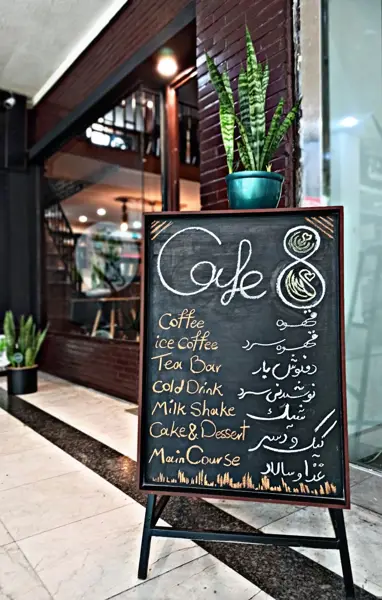 Cafe 8
Coffee قهوه
ice Coffee قهوه سرد
Tea Bar دمنوش بار
Cold Drink نوشیدنی سرد
Milk Shake شیک
Cake & Dessert کیک و دسر
Main Course غذا و سالاد